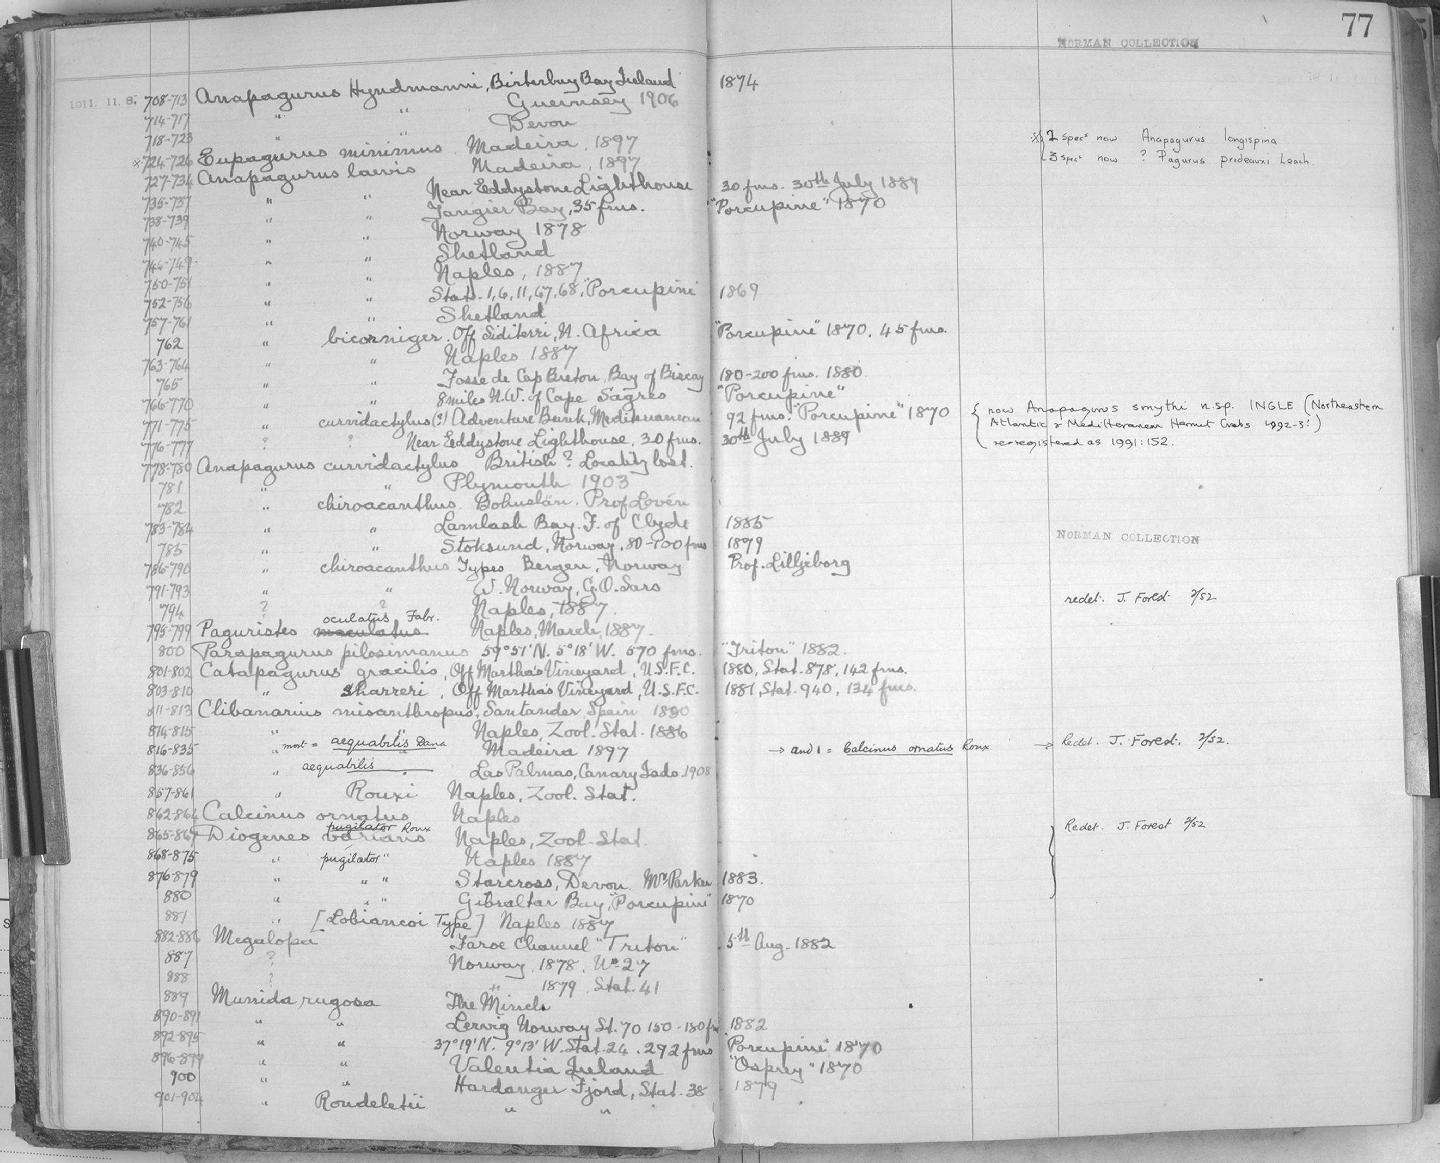 77
NORMAN COLLECTION
1911. 11. 8. 708-713 Anapagurus Hyndmanni, Birterbuy Bay Ireland 1874
714-717 " " Guernsey 1906
718-723 " " Devon
※724-726 Eupagurus minimus Madeira, 1897 ※ 2 specs now Anapagurus longispina
727-734 Anapagurus laevis Madeira, 1897 3 specs now ? Pagurus prideauxi Leach.
735-737 " " Near Eddystone Lighthouse 30 fms. 30th July 1889
738-739 " " Tangier Bay, 35 fms. "Porcupine" 1870
740-745 " " Norway 1878
746-749 " " Shetland
750-751 " " Naples, 1887
752-756 " " Stats. 1, 6, 11, 67, 68, "Porcupine" 1869
757-761 " " Shetland
762 " bicorniger. Off Sidi, N. Africa "Porcupine" 1870. 45 fms.
763-764 " " Naples 1887
765 " " Fosse de Cap Breton, Bay of Biscay 180-200 fms. 1880.
766-770 " " 8 miles N.W. of Cape Sagres "Porcupine"
771-775 " curvidactylus (?) Adventure Bank, Mediterranean 92 fms. "Porcupine" 1870 { now Anapagurus smythi n.sp. INGLE (Northeastern
776-777 ? ? Near Eddystone Lighthouse, 30 fms. 30th July 1889 Atlantic & Mediterranean Hermit Crabs
re-registered as 1991:152.
778-780 Anapagurus curvidactylus British? Locality lost.
781 " " Plymouth 1903
782 " chiroacanthus. Bohuslän, Prof Lovén
783-784 " " Lamlash Bay. F. of Clyde 1885
785 " " Stoksund, Norway, 80-100 fms 1879 NORMAN COLLECTION
786-790 " chiroacanthus Types Bergen, Norway Prof. Lilljeborg
791-793 " " W. Norway, G.O. Sars
794 ? ? Naples, 1887. redet. J. Forest 2/52
oculatus Fabr.
795-799 Paguristes maculatus Naples, March, 1887.
800 Parapagurus pilosimanus 59°51' N. 5°18' W. 570 fms. "Triton" 1882.
801-802 Catapagurus gracilis, Off Martha's Vineyard, U.S.F.C. 1880, Stat. 878, 142 fms.
803-810 " Sharreri, Off Martha's Vineyard, U.S.F.C. 1881, Stat. 940, 134 fms.
811-813 Clibanarius misanthropus, Santander Spain 1880
814-815 " " Naples, Zool. Stat. 1886
816-835 " most = aequabilis Dana Madeira 1897 → and 1 = Calcinus ornatus Roux → Redet. J. Forest. 2/52.
836-856 " aequabilis Las Palmas, Canary Isds. 1908
857-861 " Rouxi Naples, Zool. Stat.
862-864 Calcinus ornatus Naples
pugilator Roux
865-867 Diogenes varians Naples, Zool. Stat. Redet. J. Forest 2/52
868-875 " pugilator " Naples 1887
876-879 " " " Starcross, Devon. Mr Parker 1883.
880 " " " Gibraltar Bay, "Porcupine" 1870
881 " [Lobiancoi Type] Naples 1887
882-886 Megalopa Faroe Channel "Triton" 5th Aug. 1882
887 ? Norway, 1878. No 27
888 ? " 1879. Stat. 41
889 Munida rugosa The Minch
890-891 " " Lervig Norway St. 70 150-180 fm 1882
892-895 " " 37°19' N. 9°13' W. Stat. 24. 292 fms "Porcupine" 1870
896-899 " " Valentia Ireland "Osprey" 1870
900 " " Hardanger Fjord, Stat. 38 1879
901-904 " Rondeletii " "